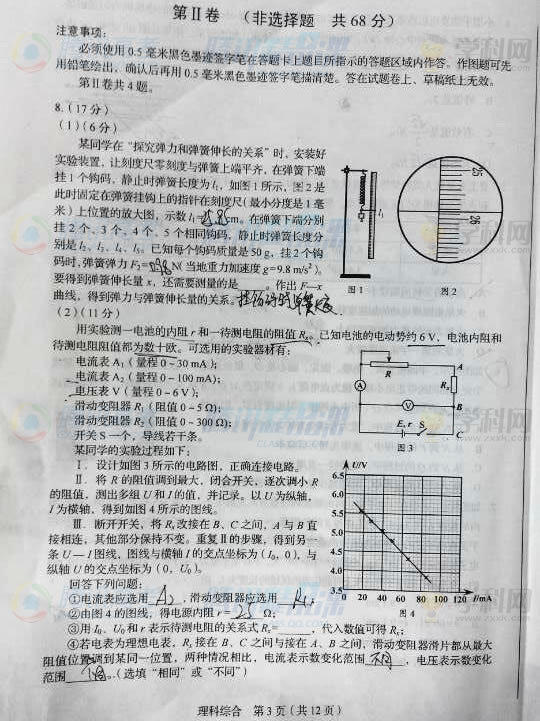 第Ⅱ卷 （非选择题 共68分）
注意事项：
必须使用0.5毫米黑色墨迹签字笔在答题卡上题目所指示的答题区域内作答。作图题可先
用铅笔绘出，确认后再用0.5毫米黑色墨迹签字笔描清楚。答在试题卷上、草稿纸上无效。
第Ⅱ卷共4题。
8.（17分）
（1）（6分）
某同学在“探究弹力和弹簧伸长的关系”时，安装好
实验装置，让刻度尺零刻度与弹簧上端平齐，在弹簧下端
挂1个钩码，静止时弹簧长度为l₁，如图1所示，图2是
此时固定在弹簧挂钩上的指针在刻度尺（最小分度是1毫
米）上位置的放大图，示数l₁=25.85cm。在弹簧下端分别
挂2个、3个、4个、5个相同钩码，静止时弹簧长度分
别是l₂、l₃、l₄、l₅。已知每个钩码质量是50g，挂2个钩
码时，弹簧弹力F₂=0.98N（当地重力加速度g=9.8m/s²）。
要得到弹簧伸长量x，还需要测量的是____。作出F—x
曲线，得到弹力与弹簧伸长量的关系。
l₁
25
26
图1
图2
（2）（11分）
用实验测一电池的内阻r和一待测电阻的阻值Rₓ。已知电池的电动势约6V，电池内阻和
待测电阻阻值都为数十欧。可选用的实验器材有：
电流表A₁（量程0~30mA）；
电流表A₂（量程0~100mA）；
电压表V（量程0~6V）；
滑动变阻器R₁（阻值0~5Ω）；
滑动变阻器R₂（阻值0~300Ω）；
开关S一个，导线若干条。
某同学的实验过程如下：
Ⅰ．设计如图3所示的电路图，正确连接电路。
Ⅱ．将R的阻值调到最大，闭合开关，逐次调小R
的阻值，测出多组U和I的值，并记录。以U为纵轴，
I为横轴，得到如图4所示的图线。
Ⅲ．断开开关，将Rₓ改接在B、C之间，A与B直
接相连，其他部分保持不变。重复Ⅱ的步骤，得到另一
条U—I图线，图线与横轴I的交点坐标为（I₀，0），与
纵轴U的交点坐标为（0，U₀）。
R
A
A
Rₓ
V
B
E, r
S
C
图3
U/V
6.5
6.0
5.5
5.0
4.5
4.0
3.5
0 20 40 60 80 100 120 I/mA
图4
回答下列问题：
①电流表应选用 A₂，滑动变阻器应选用
②由图4的图线，得电源内阻r=25Ω；
③用I₀、U₀和r表示待测电阻的关系式Rₓ=____，代入数值可得Rₓ；
④若电表为理想电表，Rₓ接在B、C之间与接在A、B之间，滑动变阻器滑片都从最大
阻值位置调到某同一位置，两种情况相比，电流表示数变化范围 不同，电压表示数变化
范围____。（选填“相同”或“不同”）
理科综合 第3页（共12页）
学科网
www.zxxk.com